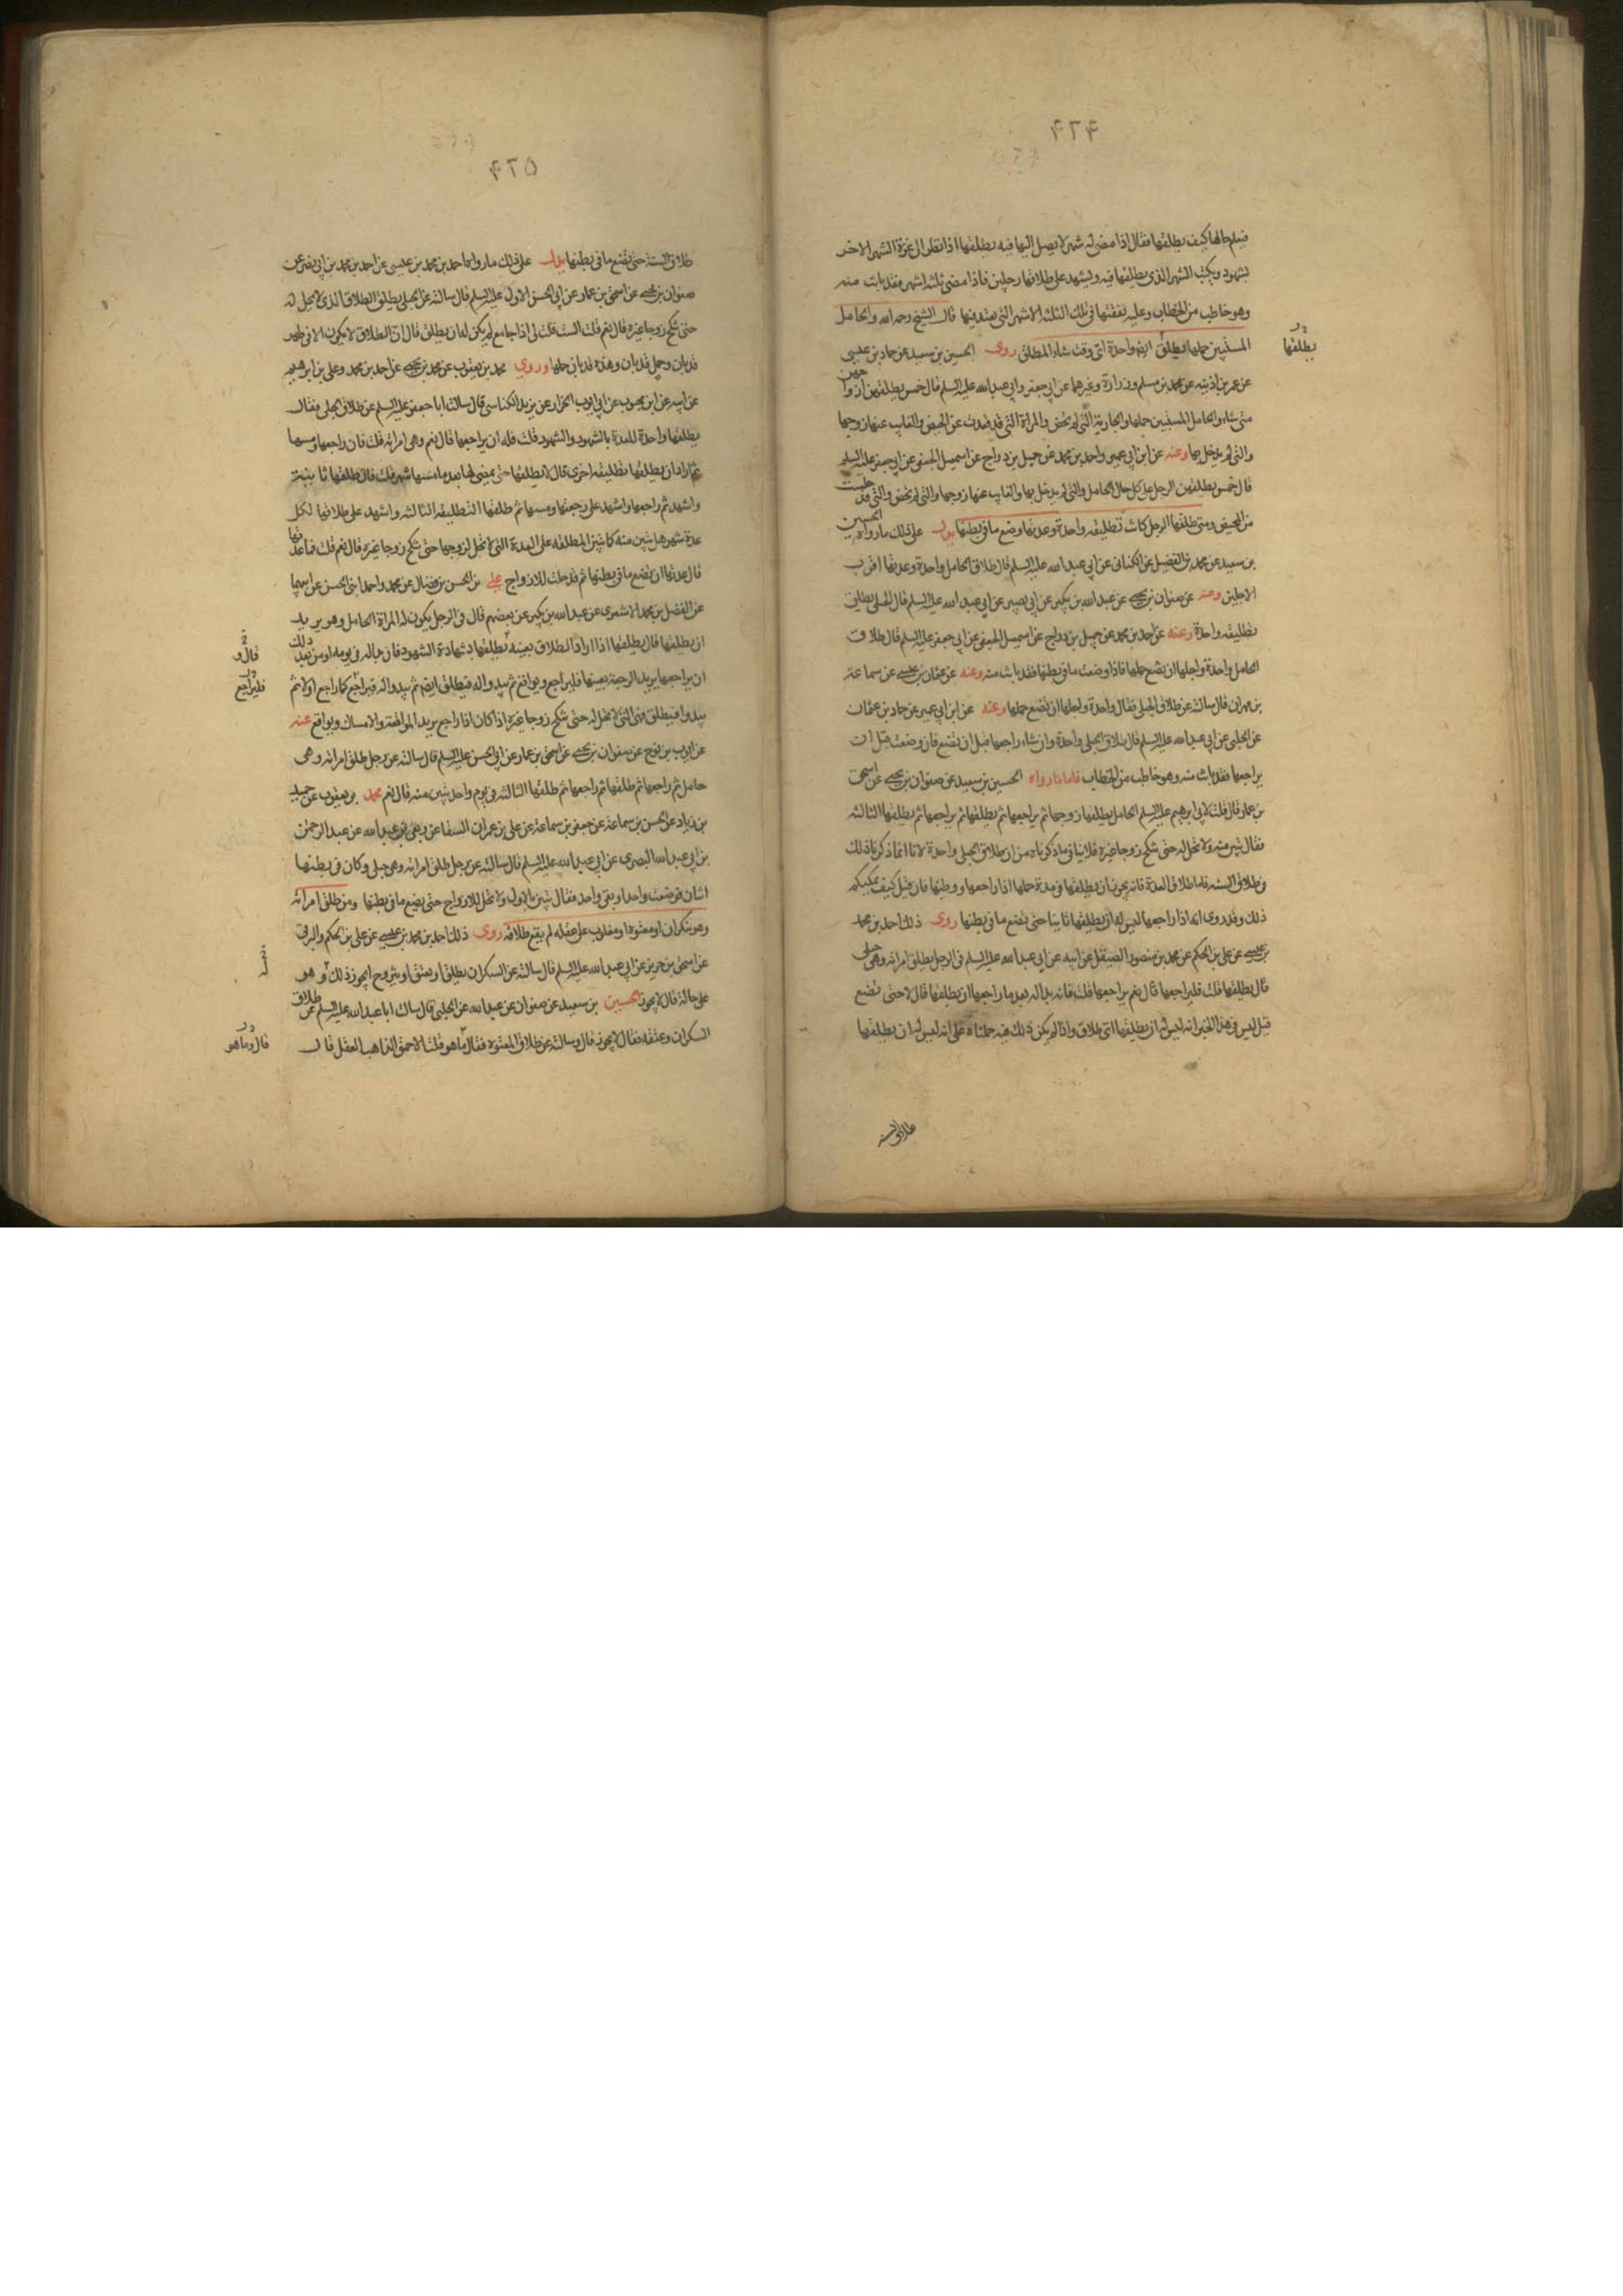 ۴۲۴
فيعلم حالها كيف يطلقها فقال اذا مضى له شهر لا يصل اليها فيه يطلقها اذا نظر الى غرة الشهر الاخر
بشهود ويكتب الشهر الذى يطلقها فيه ويشهد على طلاقها رجلين فاذا مضى ثلثة اشهر فقد بانت منه
وهو خاطب من الخطاب وعليه نفقتها فى تلك الثلثة الاشهر التى تعتد فيها قال الشيخ رحمه الله والحامل
المستبين حملها يطلق ايضا واحدة اى وقت شاء المطلق روى الحسين بن سعيد عن حماد بن عيسى
يطلقها
عن عمر بن اذينه عن محمد بن مسلم وزرارة وغيرهما عن ابى جعفر وابى عبد الله عليه السلم قال خمس يطلقهن ازواجهن
متى شاء والحامل المستبين حملها والجارية التى لم تحض والمراة التى قد قعدت عن الحيض والغايب عنها زوجها
والتى لم يدخل بها وعنه عن ابن ابى عمير واحمد بن محمد عن جميل بن دراج عن اسمعيل الجعفى عن ابى جعفر عليه السلم
قال خمس يطلقهن الرجل على كل حال الحامل والتى لم يدخل بها والغايب عنها زوجها والتى لم تحض والتى قد جلست
من المحيض ومتى طلقها الرجل كانت تطليقه واحدة وعدتها وضع ما فى بطنها يدل على ذلك ما رواه الحسين
بن سعيد عن محمد بن الفضيل عن الكنانى عن ابى عبد الله عليه السلم قال طلاق الحامل واحدة وعدتها اقرب
الاجلين وعنه عن صفوان بن يحيى عن عبد الله بن بكير عن ابى بصير عن ابى عبد الله عليه السلم قال الحبلى تطلق
تطليقه واحدة وعنه عن احمد بن محمد عن جميل بن دراج عن اسمعيل الجعفى عن ابى جعفر عليه السلم قال طلاق
الحامل واحدة واجلها ان تضع حملها فاذا وضعت ما فى بطنها فقد بانت منه وعنه عن عثمان بن عيسى عن سماعة
بن مهران قال سالته عن طلاق الحبلى فقال واحدة واجلها ان تضع حملها وعنه عن ابن ابى عمير عن حماد بن عثمان
عن الحلبى عن ابى عبد الله عليه السلم قال طلاق الحبلى واحدة وان شاء راجعها قبل ان تضع فان وضعت قبل ان
يراجعها فقد بانت منه وهو خاطب من الخطاب فاما ما رواه الحسين بن سعيد عن صفوان بن يحيى عن اسحق
بن عمار قال قلت لابى ابرهيم عليه السلم الحامل يطلقها زوجها ثم يراجعها ثم يطلقها ثم يراجعها ثم يطلقها الثالثه
فقال تبين منه ولا تحل له حتى تنكح زوجا غيره فلا ينافى ما ذكرناه من ان طلاق الحبلى واحدة لانا انما ذكرنا ذلك
فى طلاق السنه فاما طلاق العدة فانه يجوز ان يطلقها فى مدة حملها اذا راجعها ووطئها فان قيل كيف يمكنكم
ذلك وقد روى انه اذا راجعها ليس له ان يطلقها ثانيا حتى تضع ما فى بطنها روى ذلك احمد بن محمد
بن عيسى عن على بن الحكم عن محمد بن منصور الصيقل عن ابيه عن ابى عبد الله عليه السلم فى الرجل يطلق امراته وهى حبلى
قال يطلقها قلت فيراجعها قال نعم يراجعها قلت فانه بدا له بعد ما راجعها ان يطلقها قال لا حتى تضع
قيل ليس فى هذا الخبر انه ليس له ان يطلقها اى طلاق واذا لم يكن ذلك فيه حملناه على انه ليس له ان يطلقها
طلاق السنه
۴۲۵
طلاق السنة حتى تضع ما فى بطنها يدل على ذلك ما رواه احمد بن محمد بن عيسى عن احمد بن محمد بن ابى نصر عن
صفوان بن يحيى عن اسحق بن عمار عن ابى الحسن الاول عليه السلم قال سالته عن الحبلى يطلق الطلاق الذى لا يحل له
حتى تنكح زوجا غيره قال نعم قلت الست قلت لى اذا جامع لم يكن له ان يطلق قال ان الطلاق لا يكون الا فى طهر
قد بان وحمل قد بان وهذه قد بان حملها وروى محمد بن يعقوب عن محمد بن يحيى عن احمد بن محمد وعلى بن ابرهيم
عن ابيه عن ابن محبوب عن ابى ايوب الخزاز عن يزيد الكناسى قال سالت ابا جعفر عليه السلم عن طلاق الحبلى فقال
يطلقها واحدة للعدة بالشهور والشهود قلت فله ان يراجعها قال نعم وهى امراته قلت فان راجعها ومسها
ثم اراد ان يطلقها تطليقه اخرى قال لا يطلقها حتى يمضى لها بعد ما مسها شهر قلت فان طلقها ثانية
واشهد ثم راجعها واشهد على رجعتها ومسها ثم طلقها التطليقه الثالثه واشهد على طلاقها لكل
عدة شهر هل تبين منه كما تبين المطلقه على العدة التى لا تحل لزوجها حتى تنكح زوجا غيره قال نعم قلت فما عدتها
قال عدتها ان تضع ما فى بطنها ثم قد حلت للازواج على بن الحسن بن فضال عن محمد واحمد ابنى الحسن عن ابيهما
عن الفضل بن محمد الاشعرى عن عبد الله بن بكير عن بعضهم قال فى الرجل يكون له المراة الحامل وهو يريد
ان يطلقها قال يطلقها اذا اراد الطلاق بعينه يطلقها بشهادة الشهود فان بدا له فى يومه او من بعد ذلك
قال و
ان يراجعها يريد الرجعة بعينها فليراجع ويواقع ثم يبدو له فيطلق ايضا ثم يبدو له فيراجع كما راجع اولا ثم
فليراجع
يبدو له فيطلق فهى التى لا تحل له حتى تنكح زوجا غيره اذا كان اذا راجع يريد المواقعة والامساك ويواقع عنه
عن ايوب بن نوح عن صفوان بن يحيى عن اسحق بن عمار عن ابى الحسن عليه السلم قال سالته عن رجل طلق امراته وهى
حامل ثم راجعها ثم طلقها ثم راجعها ثم طلقها الثالثه فى يوم واحد تبين منه قال نعم محمد بن يعقوب عن حميد
بن زياد عن الحسن بن سماعة عن جعفر بن سماعة عن على بن عمران السقا عن ربعى بن عبد الله عن عبد الرحمن
بن ابى عبد الله البصرى عن ابى عبد الله عليه السلم قال سالته عن رجل طلق امراته وهى حبلى وكان فى بطنها
اثنان فوضعت واحدا وبقى واحد فقال تبين بالاول ولا تحل للازواج حتى تضع ما فى بطنها ومن طلق امراته
وهو سكران او معتوه او مغلوب على عقله لم يقع طلاقه روى ذلك احمد بن محمد بن عيسى عن على بن الحكم والبرقى
عن اسحق بن جرير عن ابى عبد الله عليه السلم قال سالته عن السكران يطلق او يعتق او يتزوج ايجوز ذلك وهو
على حاله قال لا يجوز الحسين بن سعيد عن صفوان عن عبد الله عن الحلبى قال سالت ابا عبد الله عليه السلم عن طلاق
السكران وعتقه فقال لا يجوز قال وسالته عن طلاق المعتوه فقال ما هو قلت الاحمق الذاهب العقل قال
قال وما هو